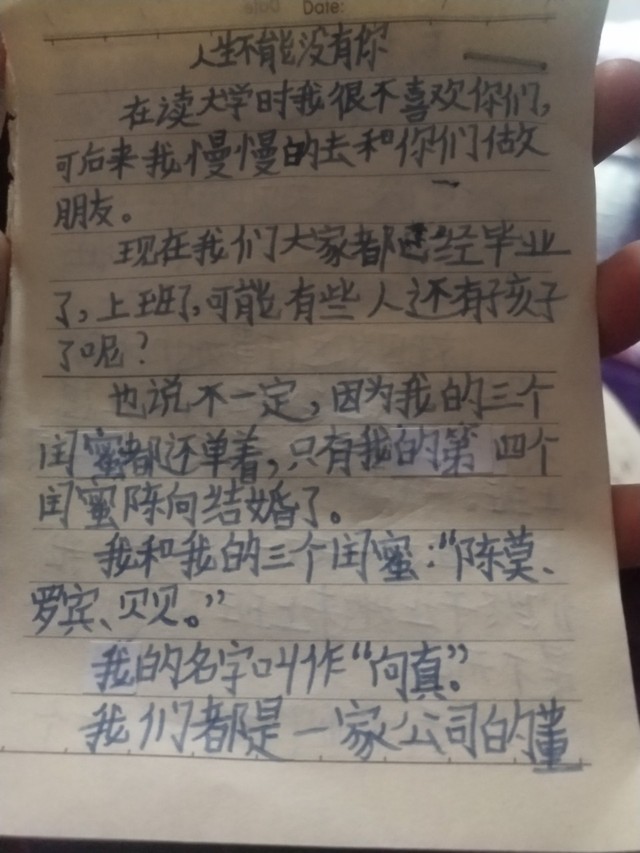 Date:
人生不能没有你
在读大学时我很不喜欢你们,
可后来我慢慢的去和你们做
朋友。
现在我们大家都已经毕业
了,上班了,可能有些人还有孩子
了呢?
也说不一定,因为我的三个
闺蜜都还单着,只有我的第四个
闺蜜陈向结婚了。
我和我的三个闺蜜:“陈莫、
罗宾、贝贝。”
我的名字叫作“向真”。
我们都是一家公司的董